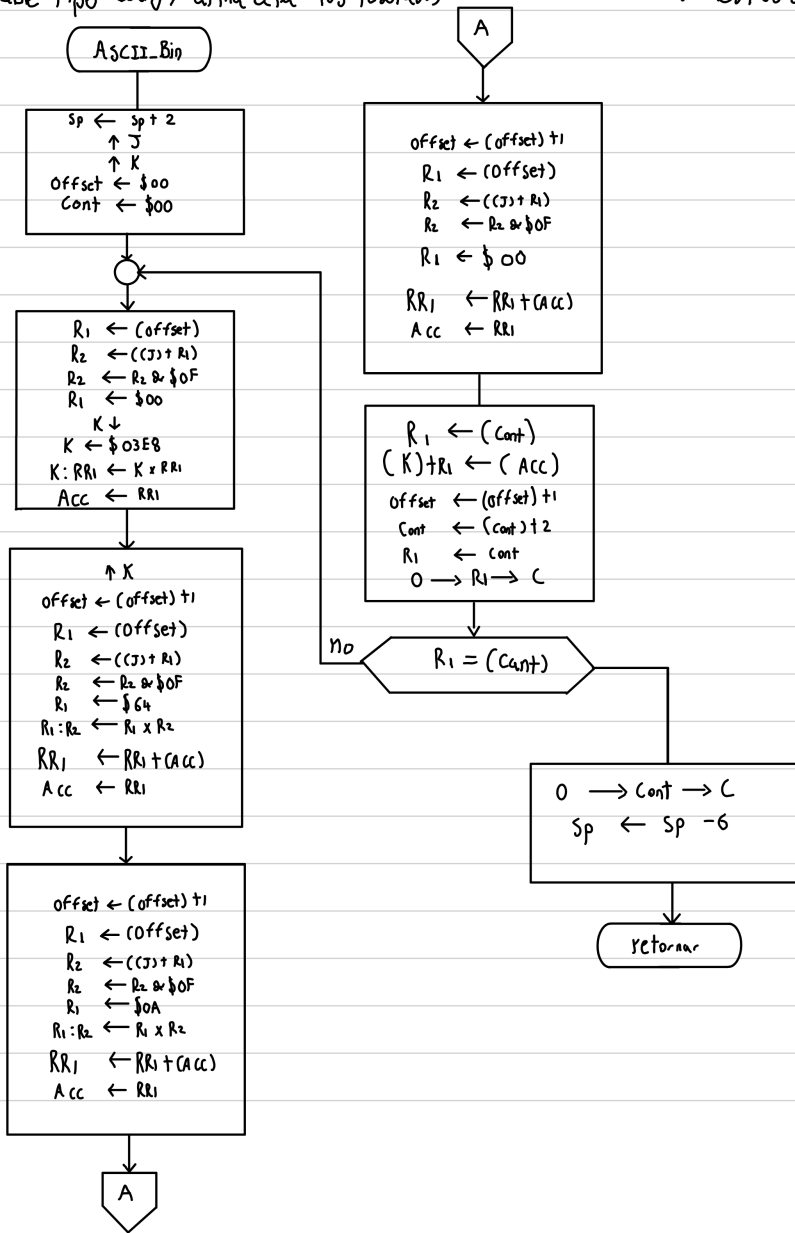 ASCII_Bin
Sp ← Sp + 2
↑ J
↑ K
Offset ← $00
Cont ← $00
R1 ← (offset)
R2 ← ((J)+ R1)
R2 ← R2 & $0F
R1 ← $00
K ↓
K ← $03E8
K : RR1 ← K x RR1
Acc ← RR1
↑ K
Offset ← (offset) +1
R1 ← (Offset)
R2 ← ((J)+ R1)
R2 ← R2 & $0F
R1 ← $64
R1 : R2 ← R1 x R2
RR1 ← RR1 + (Acc)
Acc ← RR1
offset ← (offset) +1
R1 ← (Offset)
R2 ← ((J)+ R1)
R2 ← R2 & $0F
R1 ← $0A
R1 : R2 ← R1 x R2
RR1 ← RR1 + (Acc)
Acc ← RR1
A
A
Offset ← (offset) +1
R1 ← (Offset)
R2 ← ((J)+ R1)
R2 ← R2 & $0F
R1 ← $00
RR1 ← RR1 + (Acc)
Acc ← RR1
R1 ← (Cont)
(K)+R1 ← (Acc)
Offset ← (offset) +1
Cont ← (Cont) +2
R1 ← Cont
0 → R1 → C
no
R1 = (Cant)
0 → Cont → C
Sp ← Sp -6
retornar